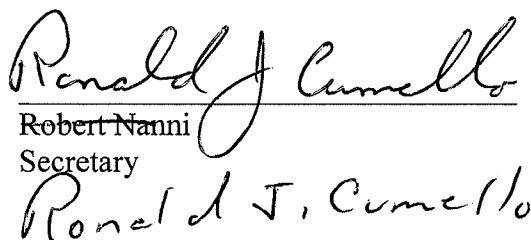 Ronald J Cumello
Robert Nanni
Secretary
Ronald J. Cumello